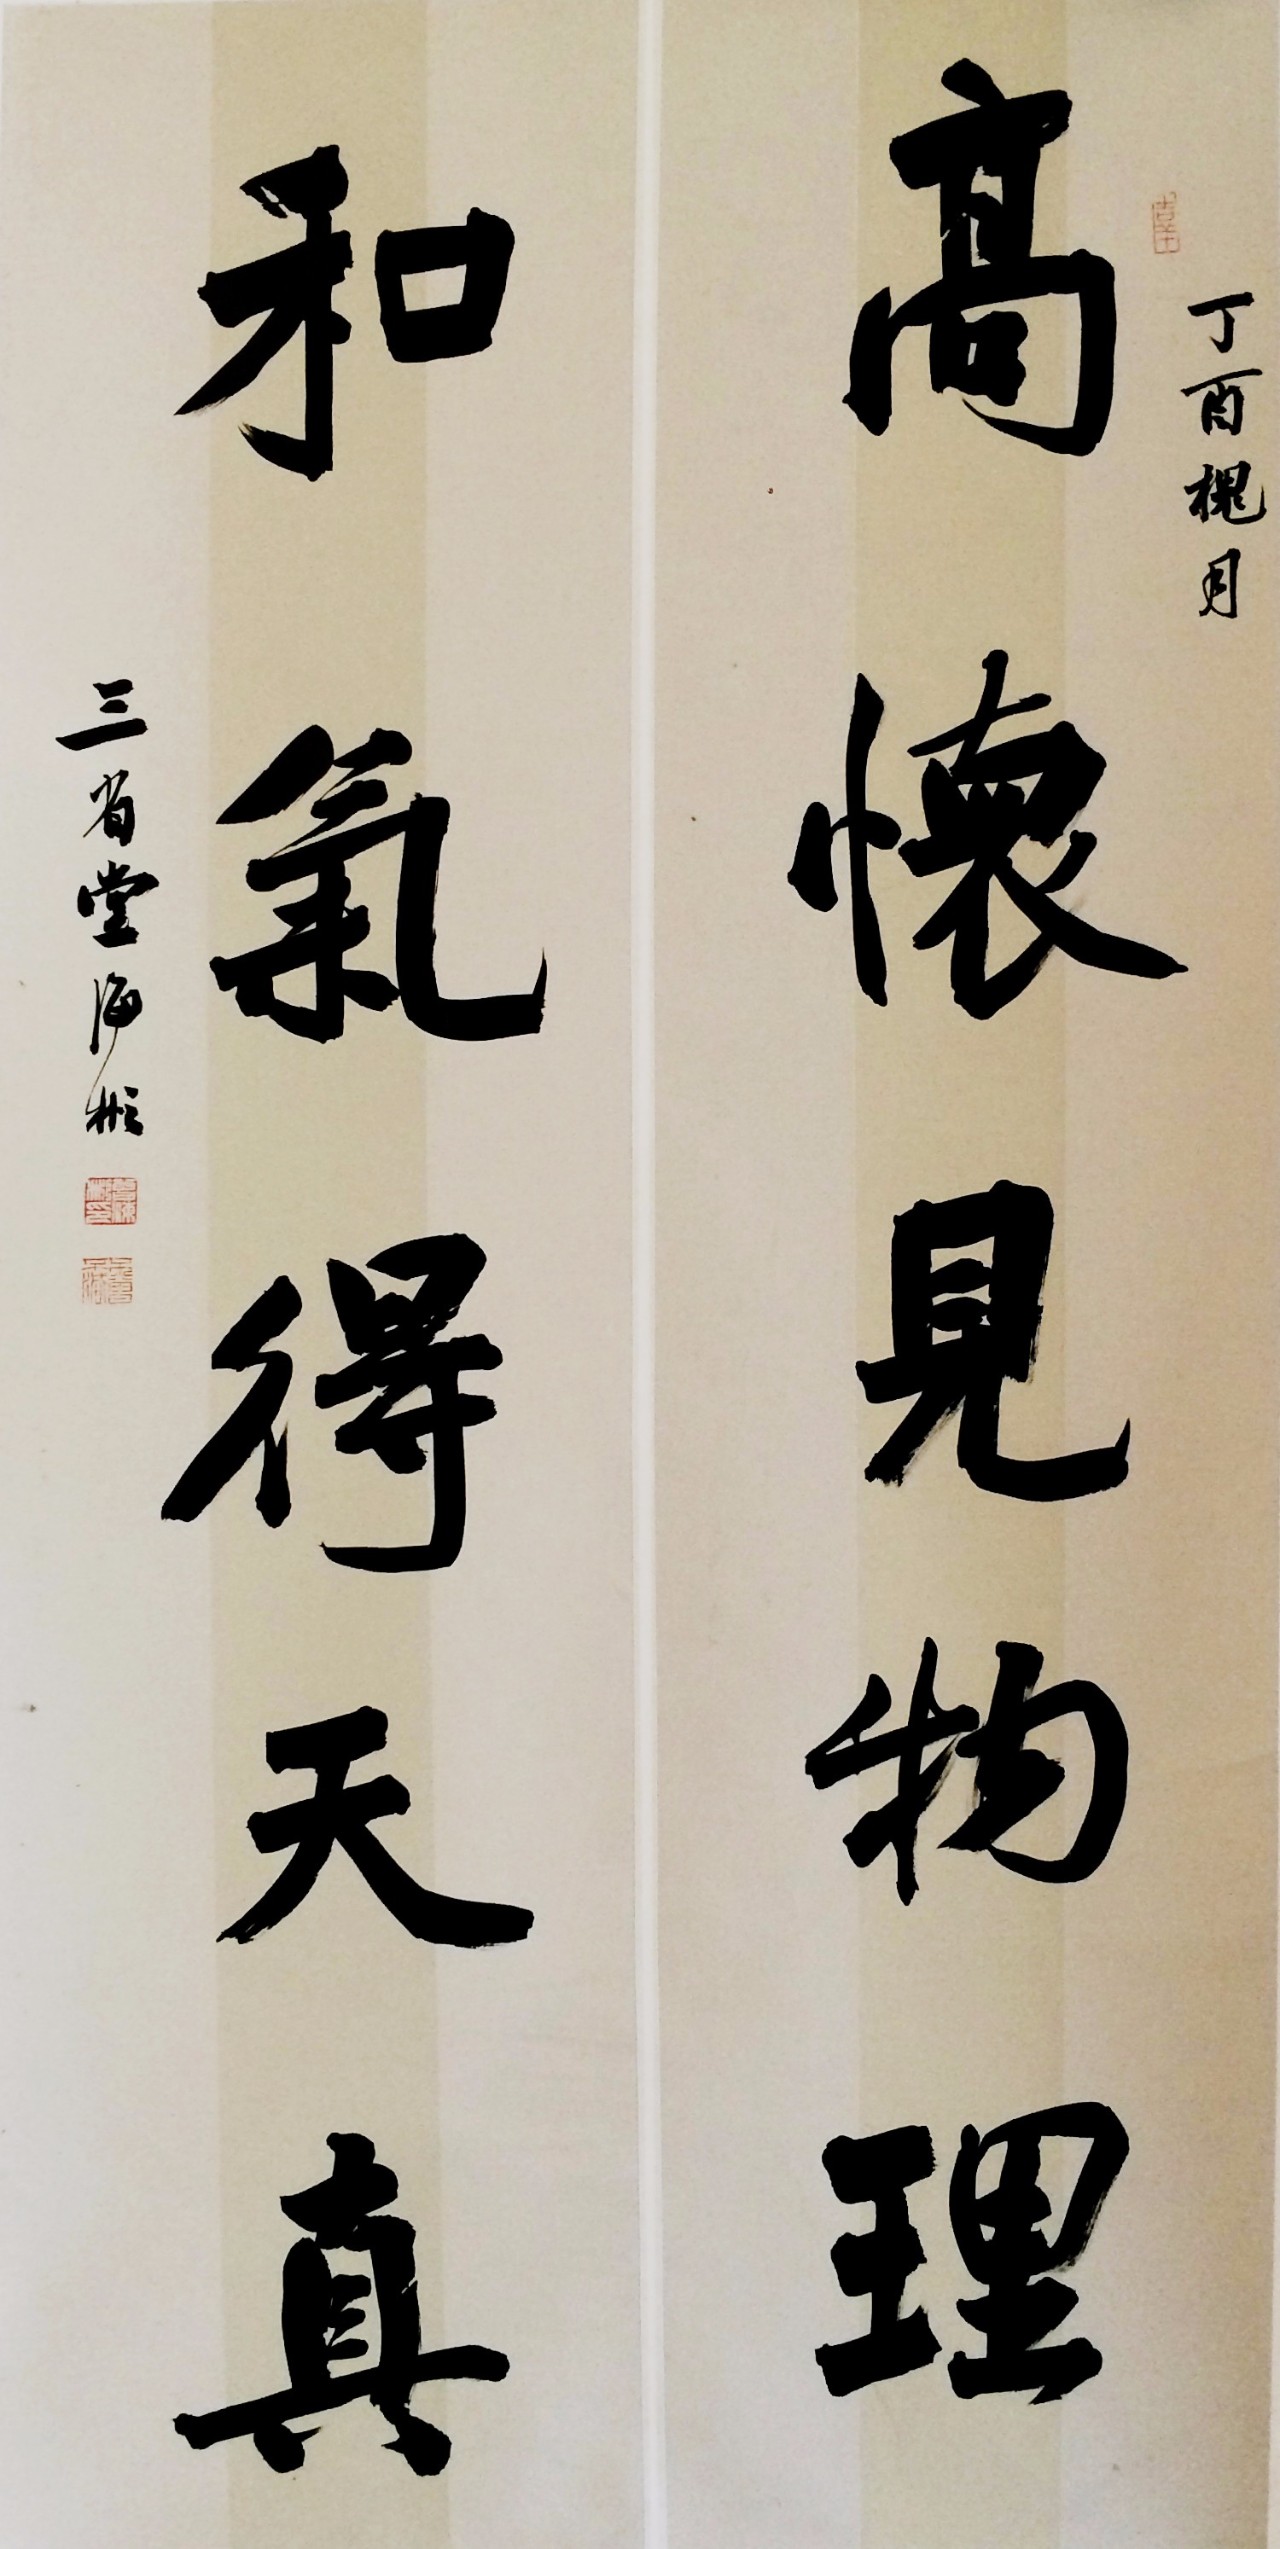 丁酉槐月
高懷見物理
和氣得天真
三省堂海彬